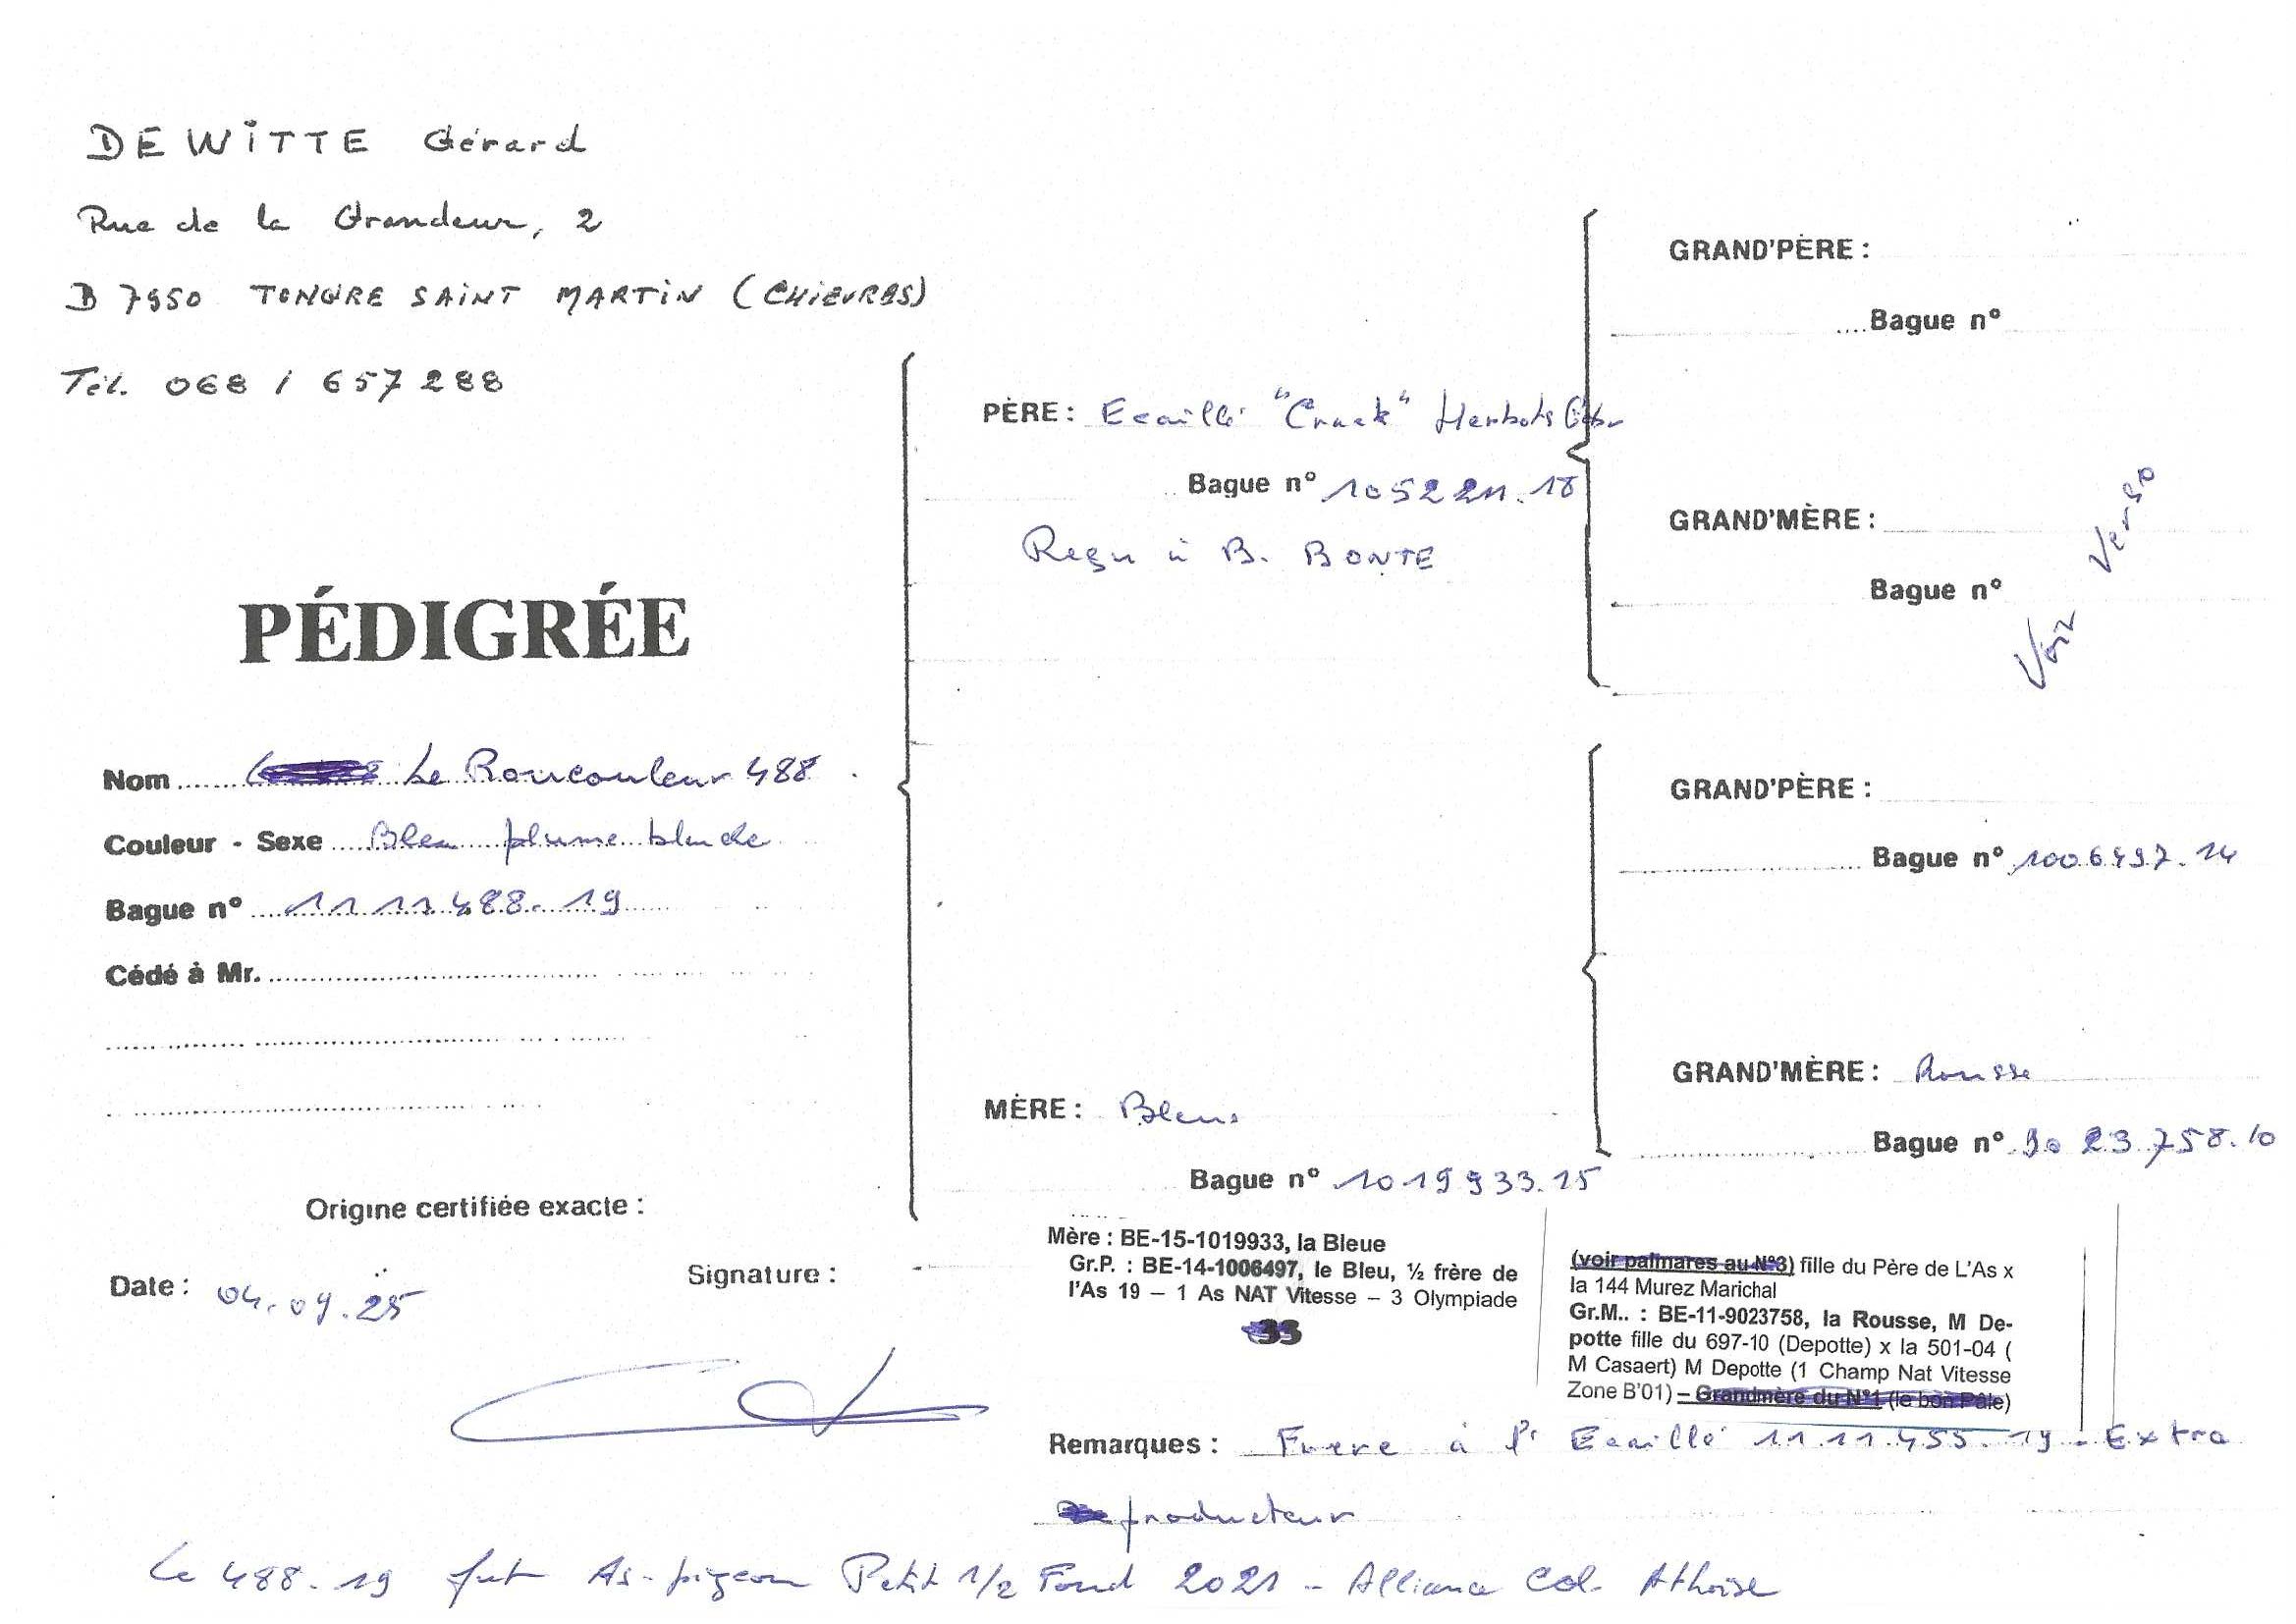 DEWITTE Gérard
Rue de la Grandeur, 2
B 7950 TONGRE SAINT MARTIN (CHIEVRES)
Tél. 068 / 657288
PÉDIGRÉE
Nom Le Roucouleur 488
Couleur - Sexe Bleu plume blanche
Bague n° 1111488.19
Cédé à Mr.
Origine certifiée exacte :
Date : 04.09.25
Signature :
PÈRE : Ecaillé "Crack" Herbots Gebr
Bague n° 1052211.18
Reçu à B. BONTE
MÈRE : Bleue
Bague n° 1019933.15
GRAND'PÈRE :
Bague n°
GRAND'MÈRE :
Bague n°
Voir Verso
GRAND'PÈRE :
Bague n° 1006497.14
GRAND'MÈRE : Rousse
Bague n° 9023758.10
Mère : BE-15-1019933, la Bleue
Gr.P. : BE-14-1006497, le Bleu, ½ frère de
l'As 19 – 1 As NAT Vitesse – 3 Olympiade
33
(voir palmares au N°3) fille du Père de L'As x
la 144 Murez Marichal
Gr.M.. : BE-11-9023758, la Rousse, M De-
potte fille du 697-10 (Depotte) x la 501-04 (
M Casaert) M Depotte (1 Champ Nat Vitesse
Zone B'01) – Grandmère du N°1 (le bon Pâle)
Remarques : Frere à l' Ecaillé 1111455.19 - Extra
producteur
Le 488.19 fut As-pigeon Petit 1/2 Fond 2021 - Alliance Col. Athoise